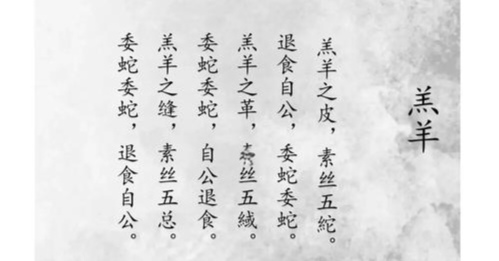 羔羊
羔羊之皮，素丝五紽。
退食自公，委蛇委蛇。
羔羊之革，素丝五緎。
委蛇委蛇，自公退食。
羔羊之缝，素丝五总。
委蛇委蛇，退食自公。